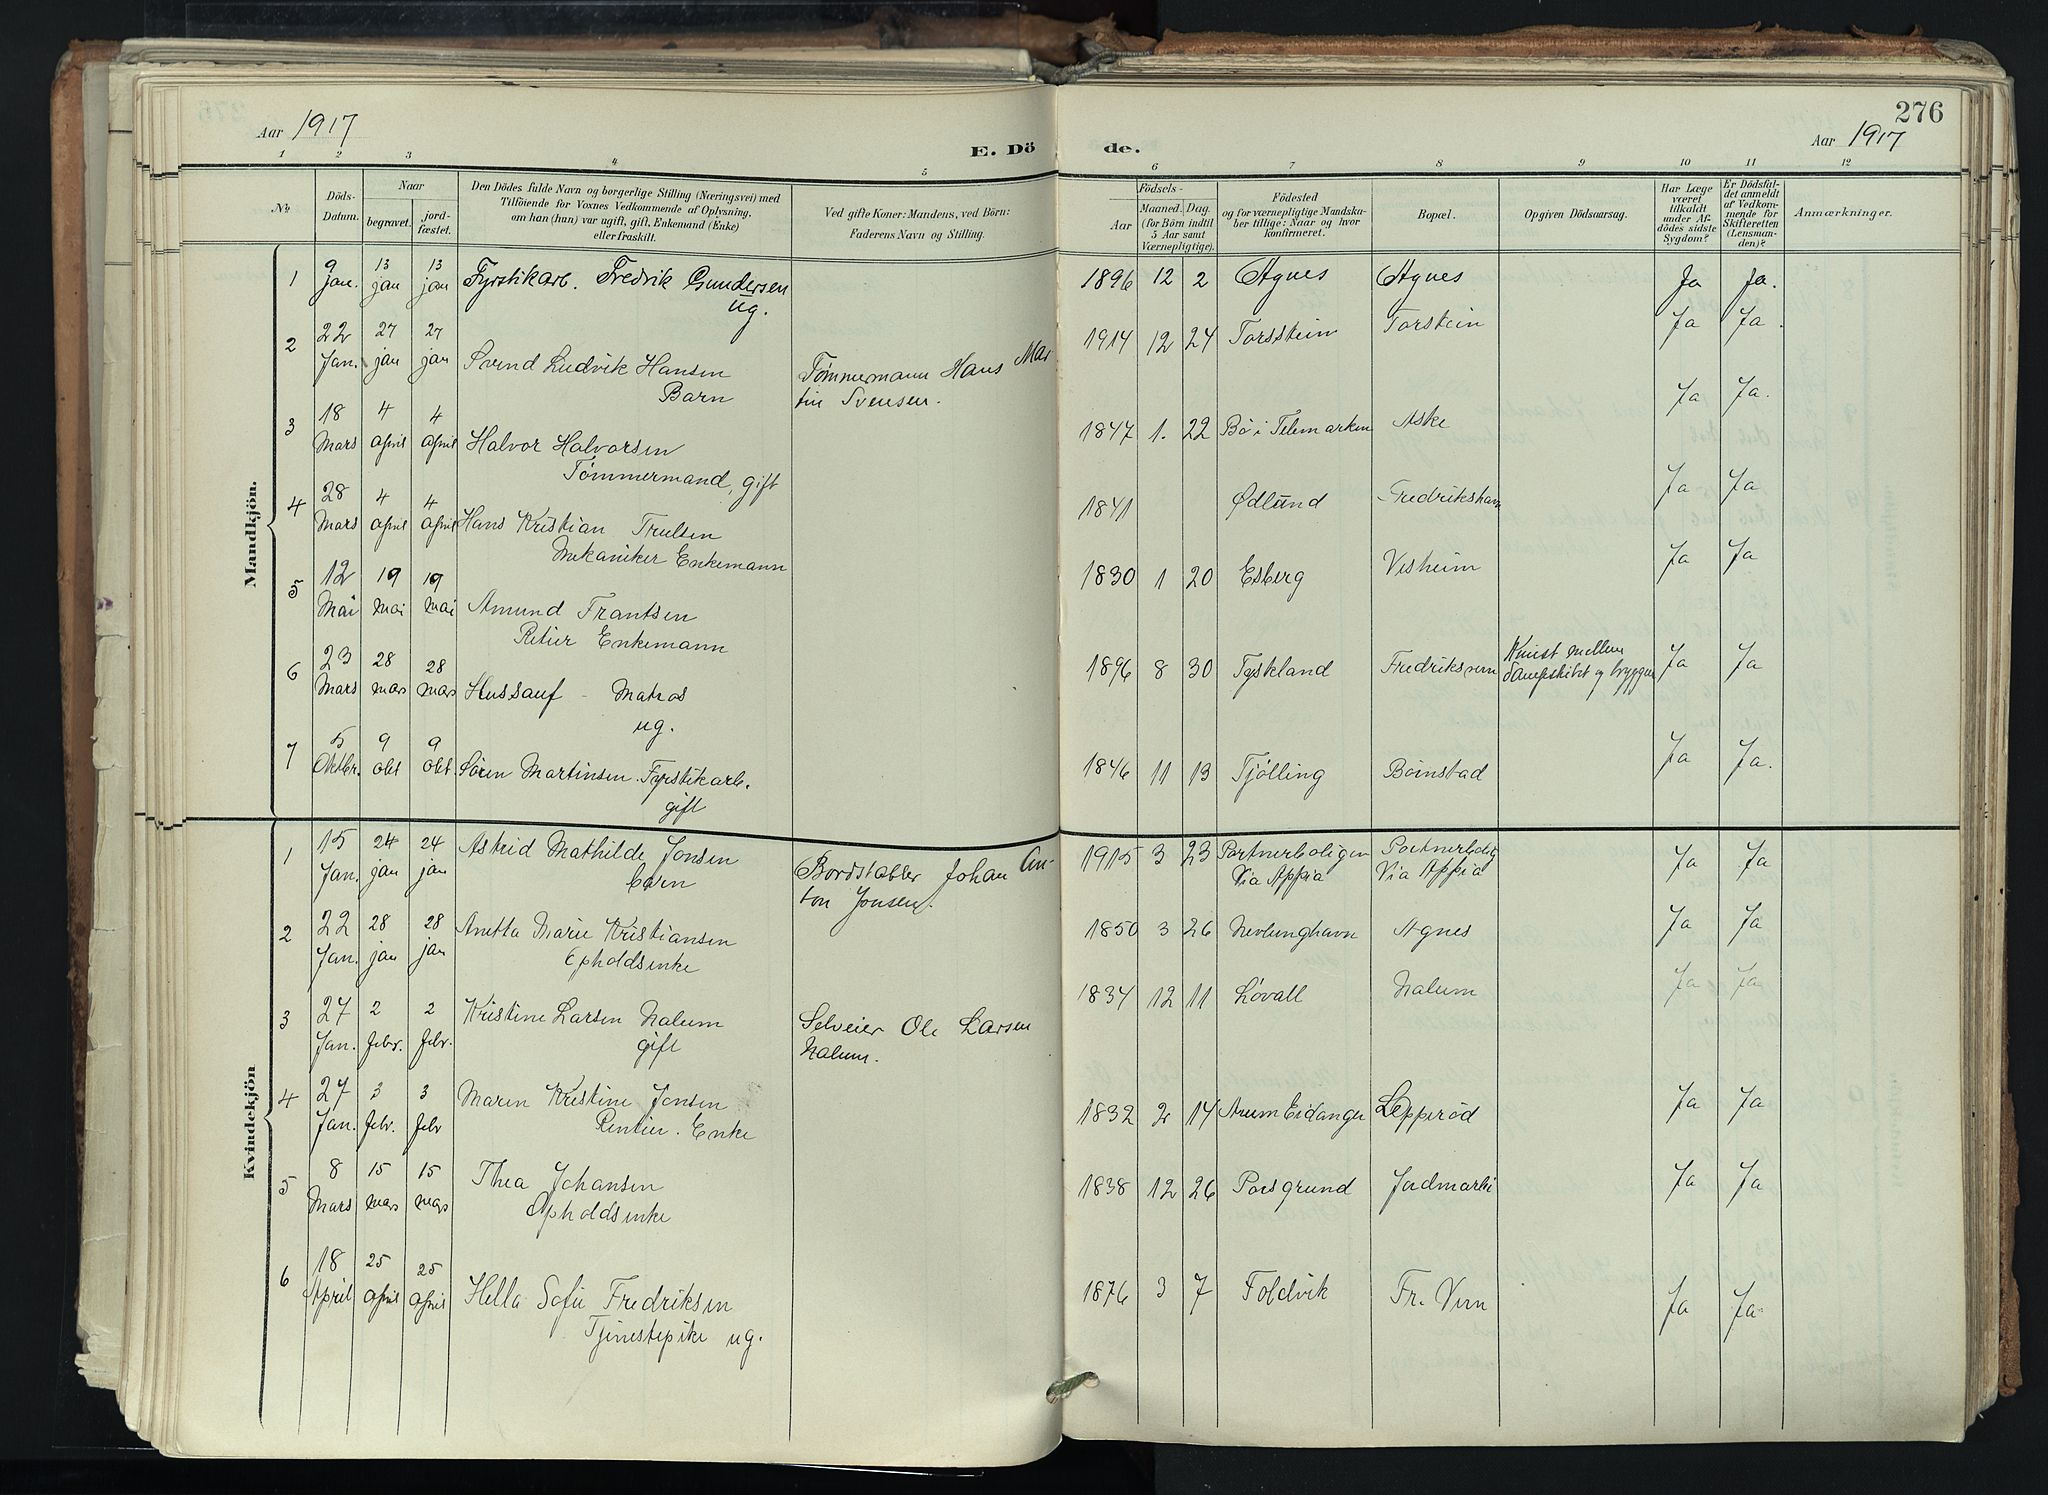 276
Aar 1917
Aar 1917
E. Dö
de.
1 2 3 4 5 6 7 8 9 10 11 12
No.
Döds-
Datum.
Naar
begravet.
jord-
fæstet.
Den Dödes fulde Navn og borgerlige Stilling (Næringsvei) med
Tilföiende for Voxnes Vedkommende af Oplysning,
om han (hun) var ugift, gift, Enkemand (Enke)
eller fraskilt.
Ved gifte Koner: Mandens, ved Börn:
Faderens Navn og Stilling.
Födsels-
Aar
Maaned. Dag.
(for Börn indtil
5 Aar samt
Værnepligtige).
Födested
og for værnepligtige Mandska-
ber tillige: Naar og hvor
konfirmeret.
Bopæl.
Opgiven Dödsaarsag.
Har Læge
været
tilkaldt
under Af-
dödes sidste
Sygdom?
Er Dödsfal-
det anmeldt
af Vedkom-
mende for
Skifteretten
(Lensman-
den)?
Anmærkninger.
Mandkjön.
1 9 Jan. 13 jan 13 jan Fyrstikarb. Fredrik Gundersen 1896 12 2 Agnes Agnes Ja Ja.
ug.
2 22 Jan. 27 jan 27 jan Svend Ludvik Hansen Tømmermann Hans Mar 1914 12 24 Torsstein Torstein Ja Ja.
Barn tin Svensen.
3 18 Mars 4 april 4 april Halvor Halvorsen 1847 1. 22 Bø i Telemarken Aske Ja Ja.
Tømmermand, gift
4 28 Mars 4 april 4 april Hans Kristian Trulsen 1841 Ødlund Fredrikshavn Ja Ja
Mekaniker Enkemann
5 12 Mai 19 mai 19 mai Amund Frantsen 1830 1 20 Esberg Visheim Ja Ja
Retier Enkemann
6 23 Mars 28 mars 28 mars Hussauf - Matros 1896 8 30 Tyskland Fredriksvern Knust mellem Ja Ja
ug. Dampskibet og bryggen
7 5 Oktbr. 9 okt 9 okt. Søren Martinsen. Fyrstikarb. 1846 11 13 Tjølling Bønstad Ja Ja.
gift
Kvindekjön
1 15 Jan. 24 jan 24 jan Astrid Mathilde Jonsen Bordstabler Johan An- 1915 3 23 Portnerboligen Portnerbolig Ja Ja
barn ton Jonsen. Via Appia Via Appia
2 22 Jan. 28 jan 28 jan Anetta Marie Kristiansen 1850 3 26 Nevlunghavn Agnes Ja Ja
Opholdsenke
3 27 Jan. 2 Febr. 2 Febr. Kristine Larsen Nalum Selveier Ole Larsen 1834 12 11 Løvall Nalum Ja Ja
gift Nalum.
4 27 Jan. 3 Febr. 3 Febr Maren Kristine Jonsen 1832 2 14 Aarum Eidanger Lepperød Ja Ja
Rentier. Enke
5 8 Mars 15 mars 15 mars Thea Johansen 1838 12 26 Porsgrund Jordmarki Ja Ja
Opholdsenke
6 18 April 25 april 25 april Hella Sofie Fredriksen 1876 3 7 Foldvik Fr. Vern Ja Ja
Tjenestepike ug.